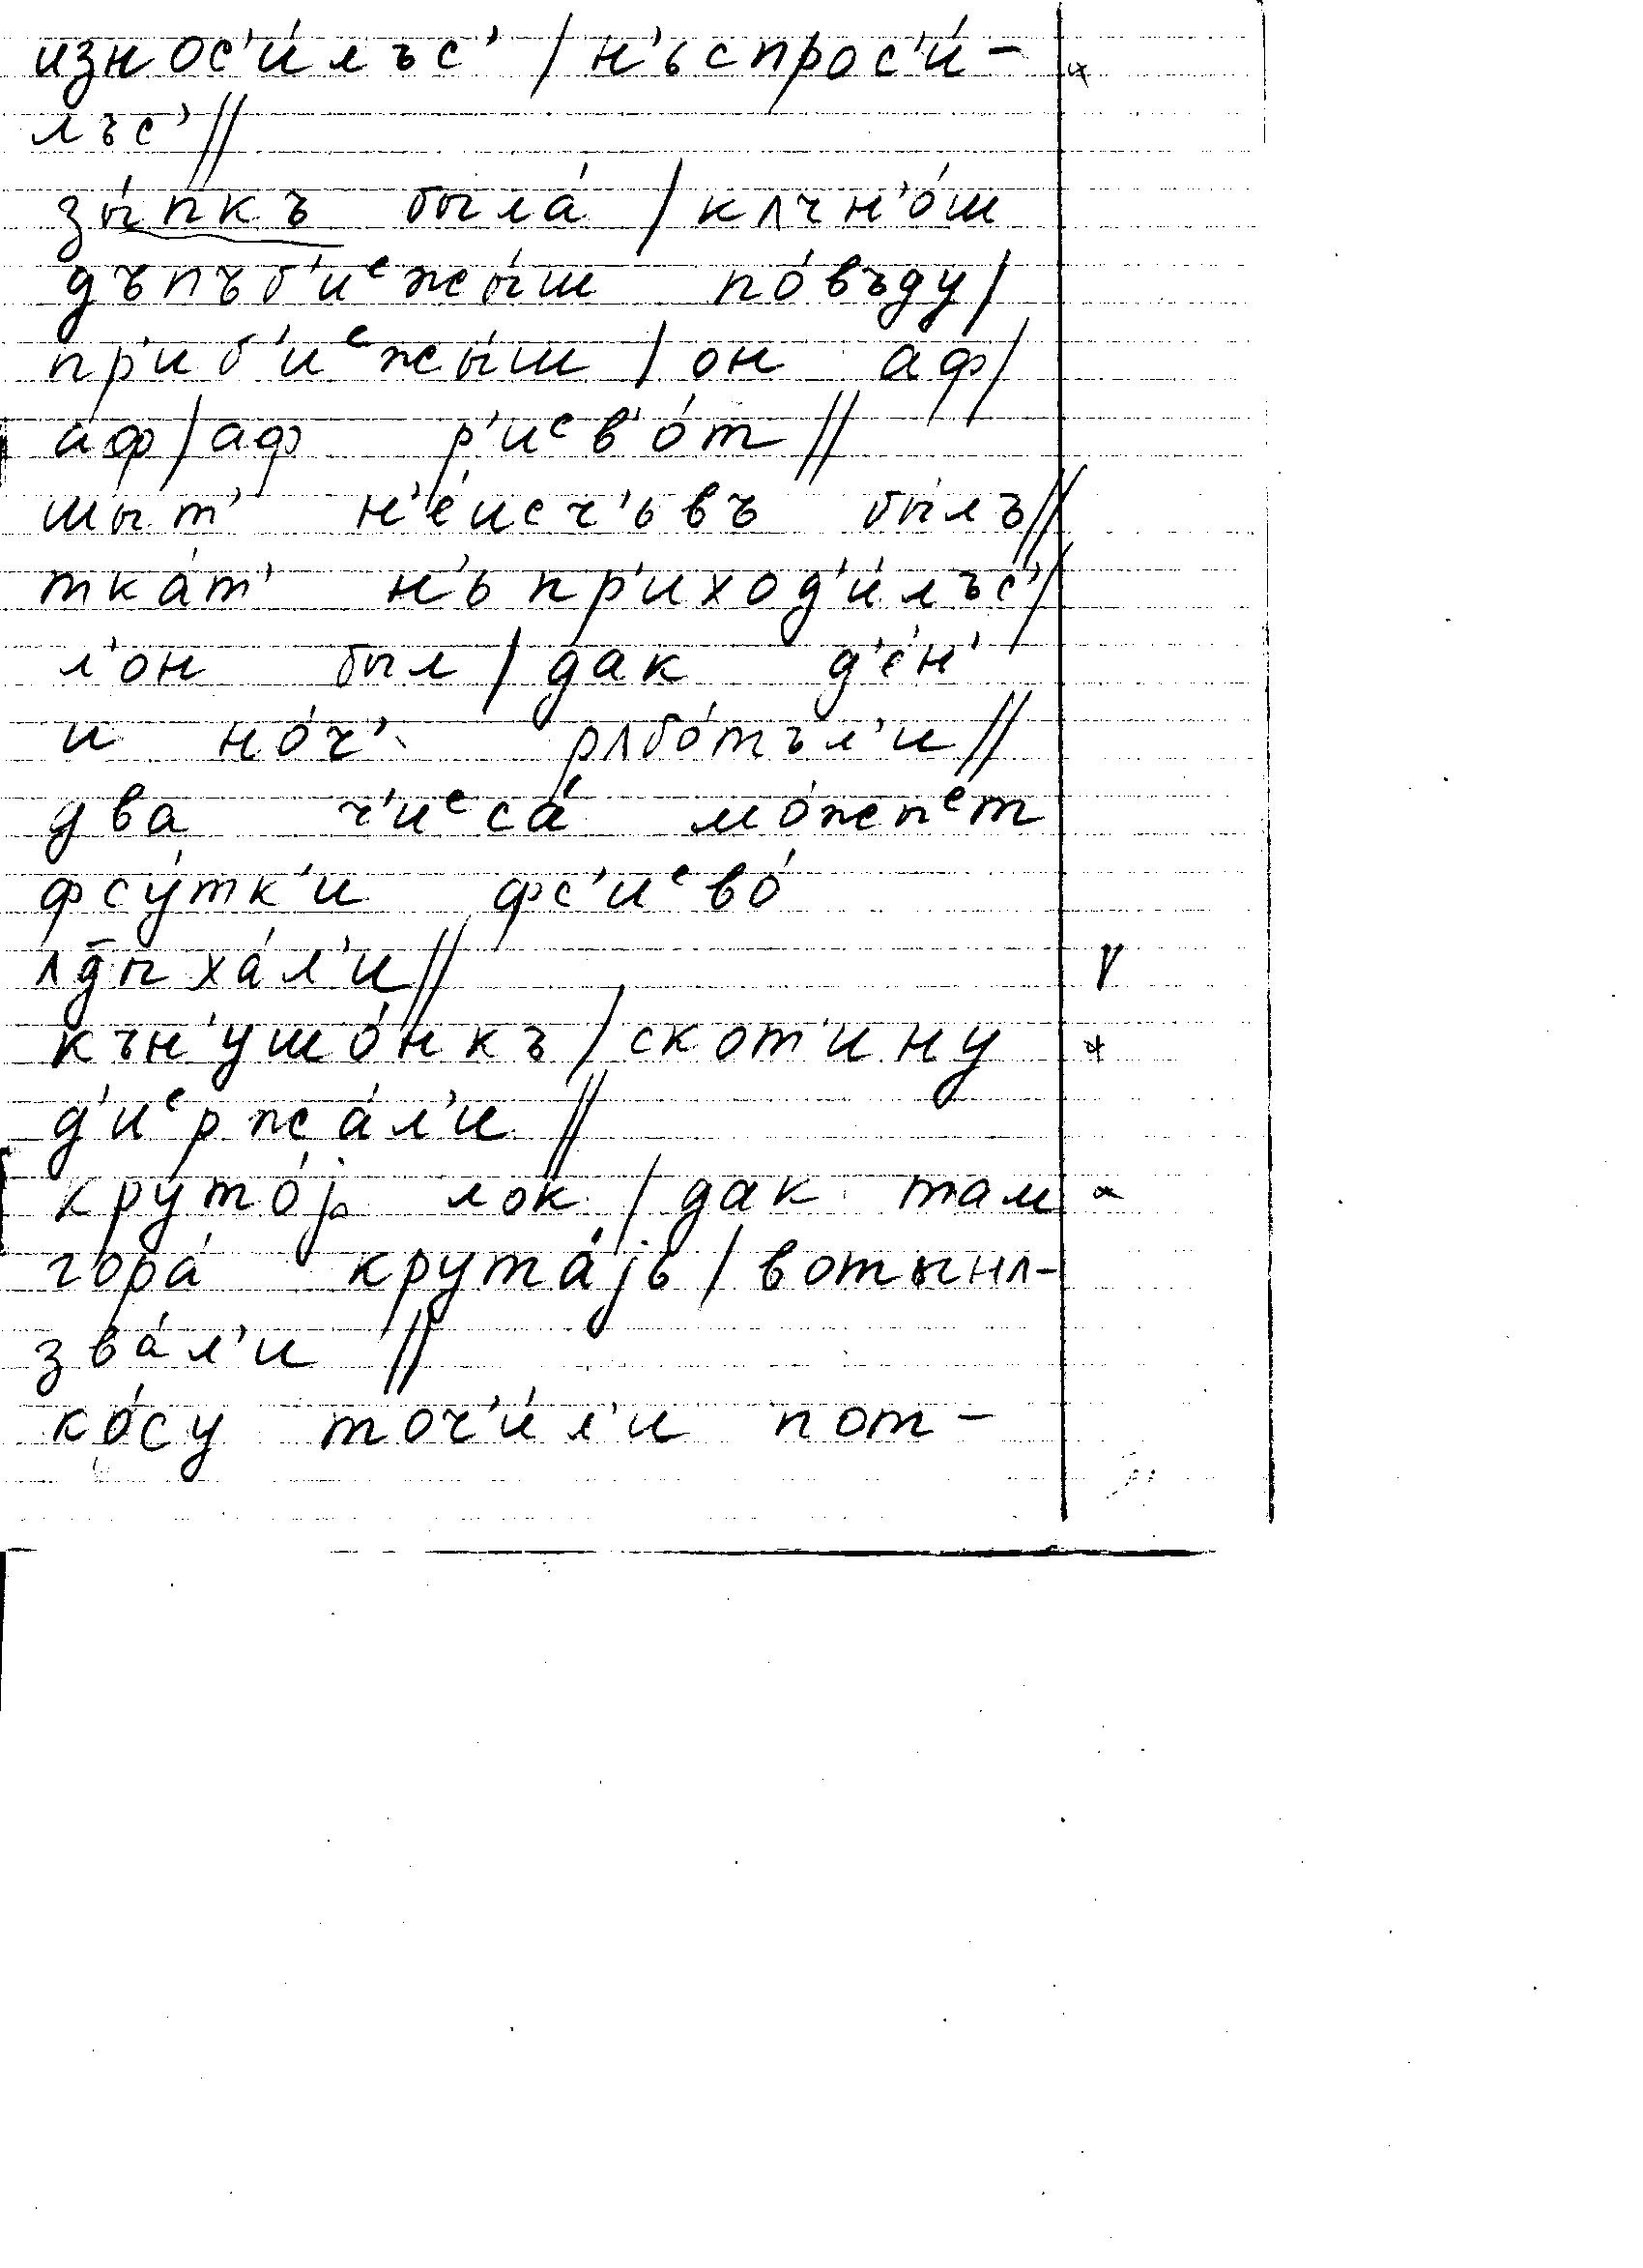 износ'и́лъс' / н'ьспрос'и́-
лъс' //
зы́пкъ была́ / кʌчн'о́ш
дъпъб'иᵉжы́ш по́въду /
пр'иб'иᵉжы́ш / он аф /
аф / аф р'иᵉв'о́т //
шыт' н'е́исч'ьвъ былъ //
тка́т' н'ьпр'иход'и́лъс' /
л'он был / дак д'ен'
и но́ч' рʌбо́тъл'и //
два ч'иᵉса́ мо́жеnᵉт
фсу́тк'и фс'иᵉво́
ʌд̅ыха́л'и //
кън'ушо́нкъ / скот'ину
д'иᵉржа́л'и //
круто́јь лок / дак там
гора́ крута́јь / вотынʌ-
зва́л'и //
ко́су точ'и́л'и пот-